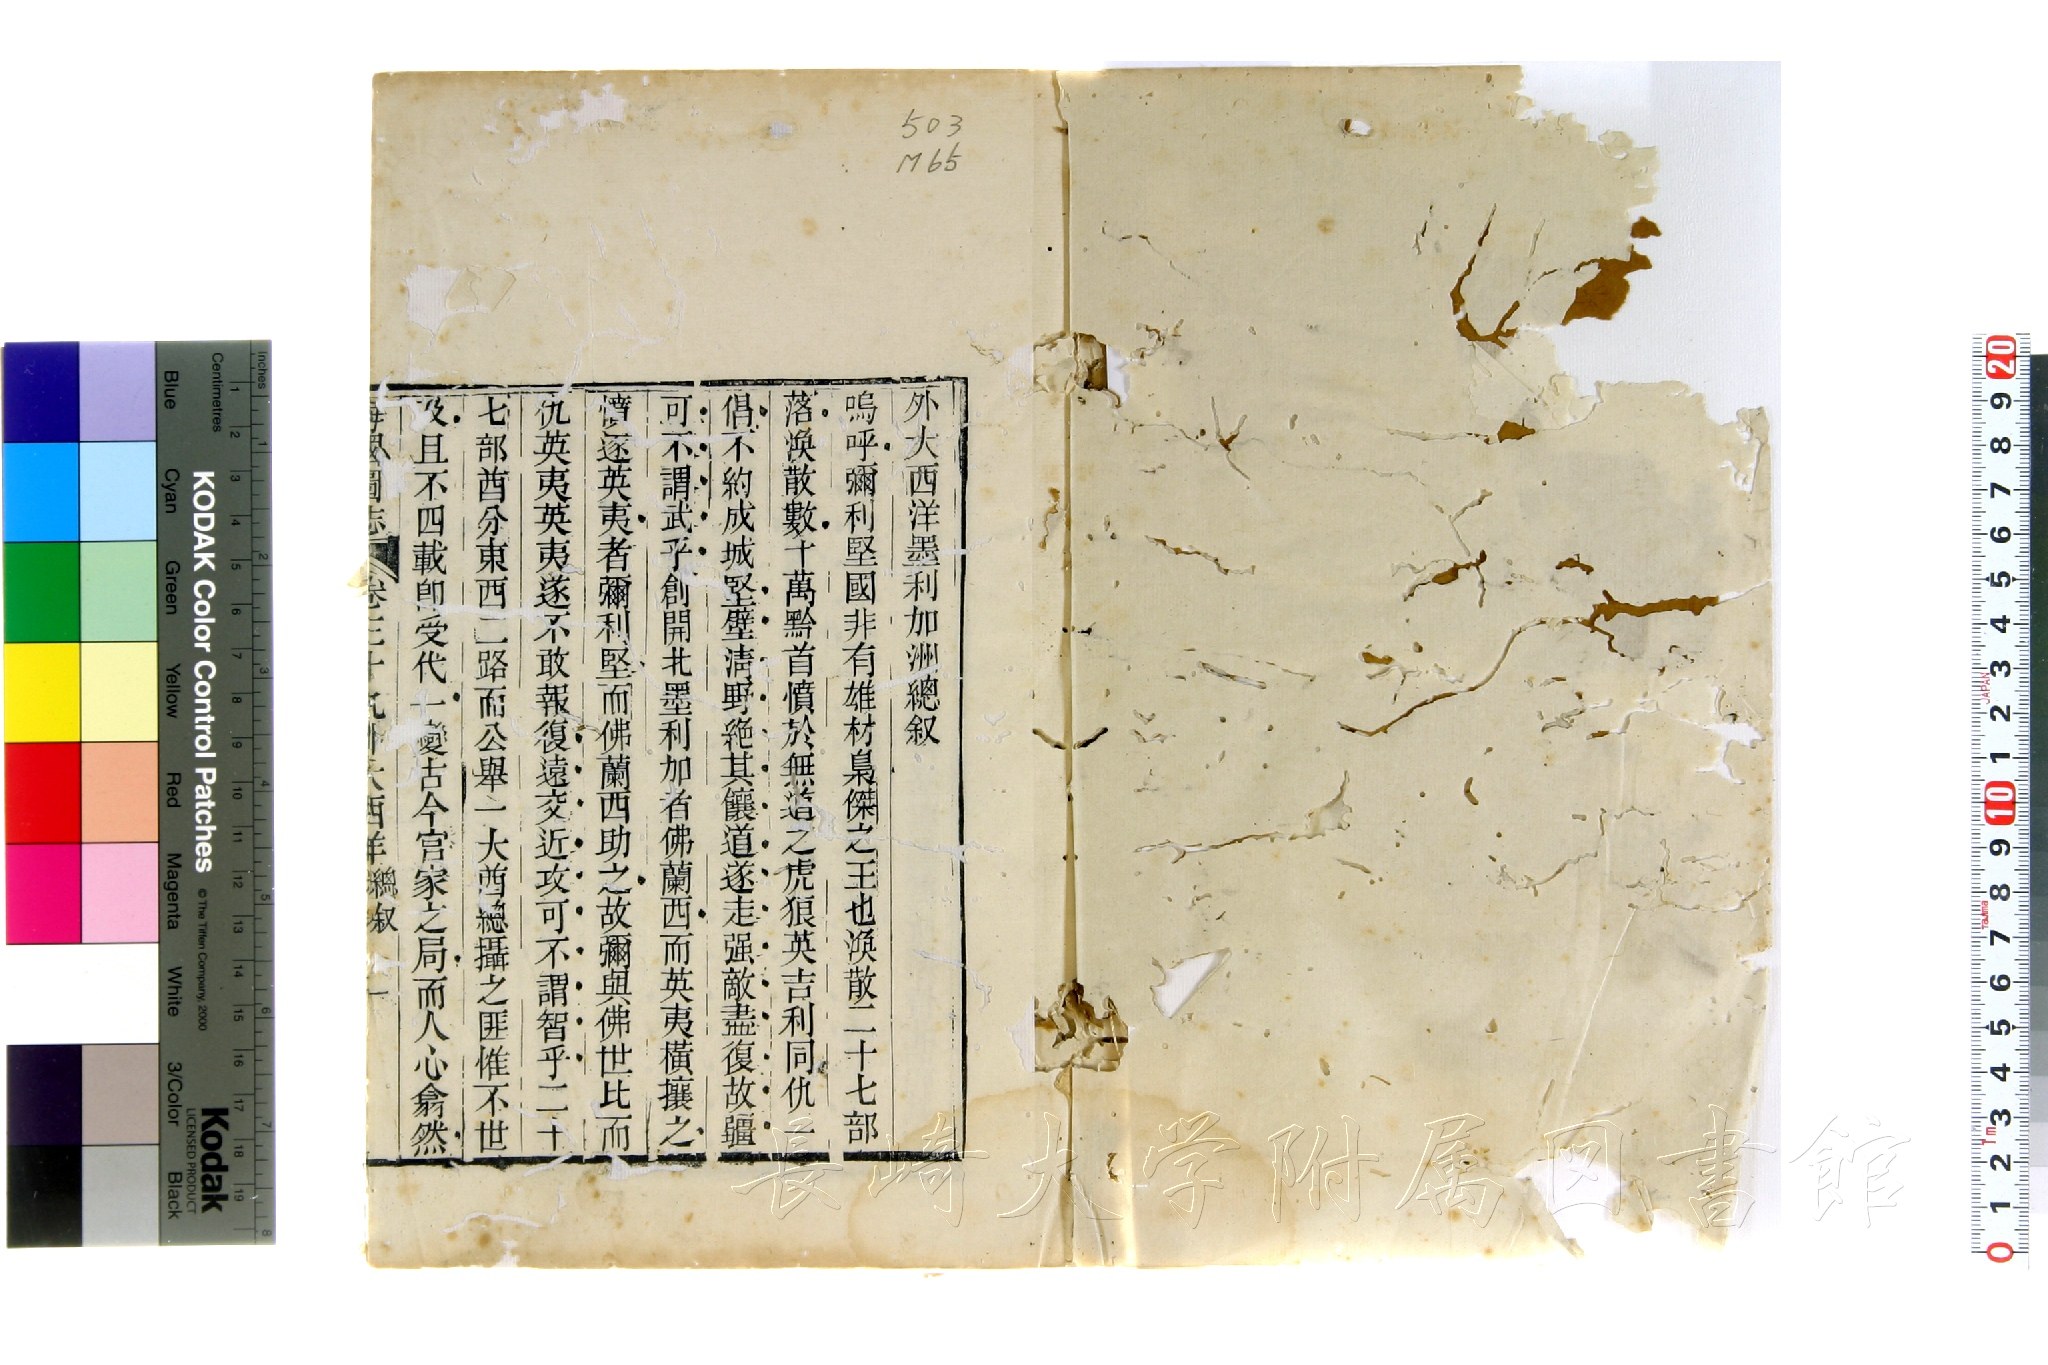 503
M65
外大西洋墨利加洲總叙
嗚呼彌利堅國非有雄材梟傑之王也渙散二十七部
落渙散數十萬黔首憤於無道之虎狼英吉利同仇一
倡不約成城堅壁清野絶其饟道遂走强敵盡復故疆
可不謂武乎創開北墨利加者佛蘭西而英夷橫攘之
憤逐英夷者彌利堅而佛蘭西助之故彌與佛世比而
仇英夷英夷遂不敢報復遠交近攻可不謂智乎二十
七部酋分東西二路而公舉一大酋總攝之匪惟不世
及且不四載卽受代一變古今官家之局而人心翕然
海國圖志 卷三十九外大西洋總叙 一
長崎大学附属図書館
KODAK Color Control Patches
© The Tiffen Company, 2000
Kodak
LICENSED PRODUCT
Centimetres
1 2 3 4 5 6 7 8 9 10 11 12 13 14 15 16 17 18 19
Inches
1 2 3 4 5 6 7 8
Blue
Cyan
Green
Yellow
Red
Magenta
White
3/Color
Black
20 9 8 7 6 5 4 3 2 1 10 9 8 7 6 5 4 3 2 1 0
JAPAN
1m